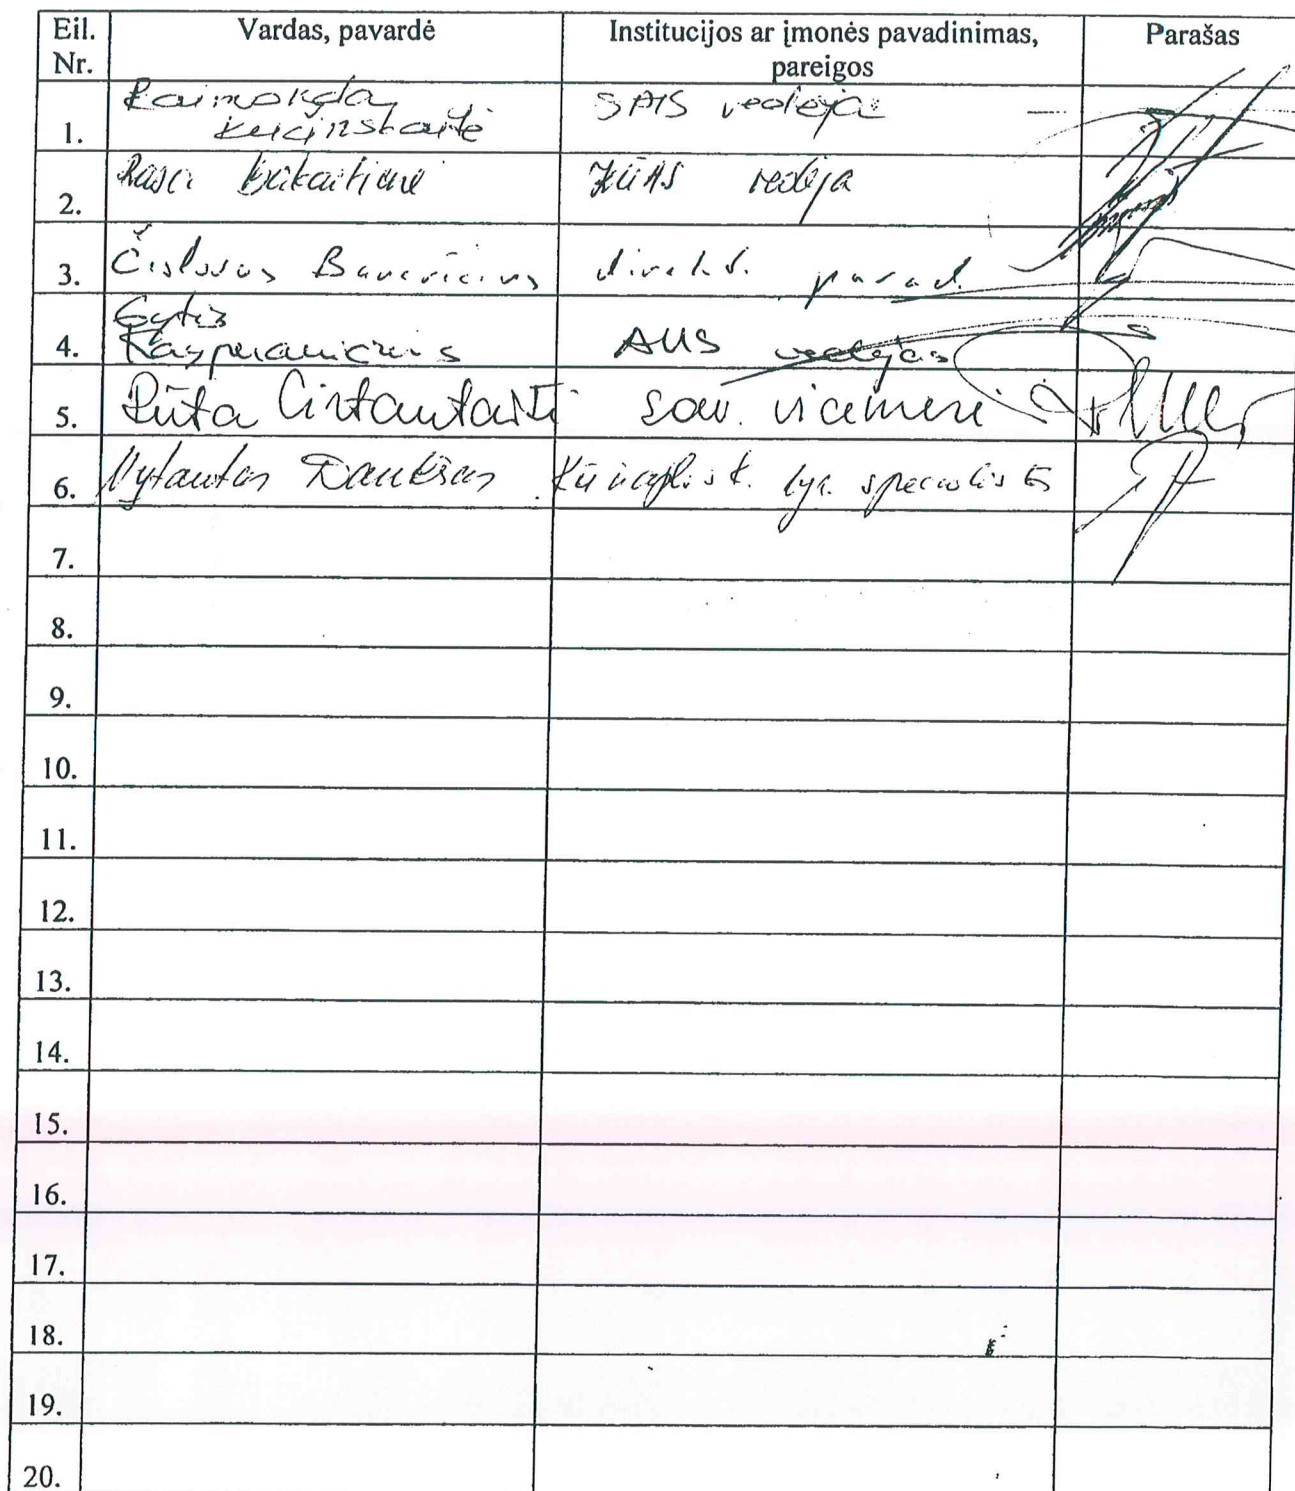 Eil. Vardas, pavardė Institucijos ar įmonės pavadinimas, Parašas
Nr. pareigos
Raimonda
1. Kučinskaitė SPIS vedėja
2. Rasa vedėja
3. Česlovas Banevičius direkt. pavad.
Gytis
4. Kasperavičius AUS vedėjas
5. Rūta Cirtautaitė sav. vicemerė
6. Vytautas spec­ialistas
7.
8.
9.
10.
11.
12.
13.
14.
15.
16.
17.
18.
19.
20.